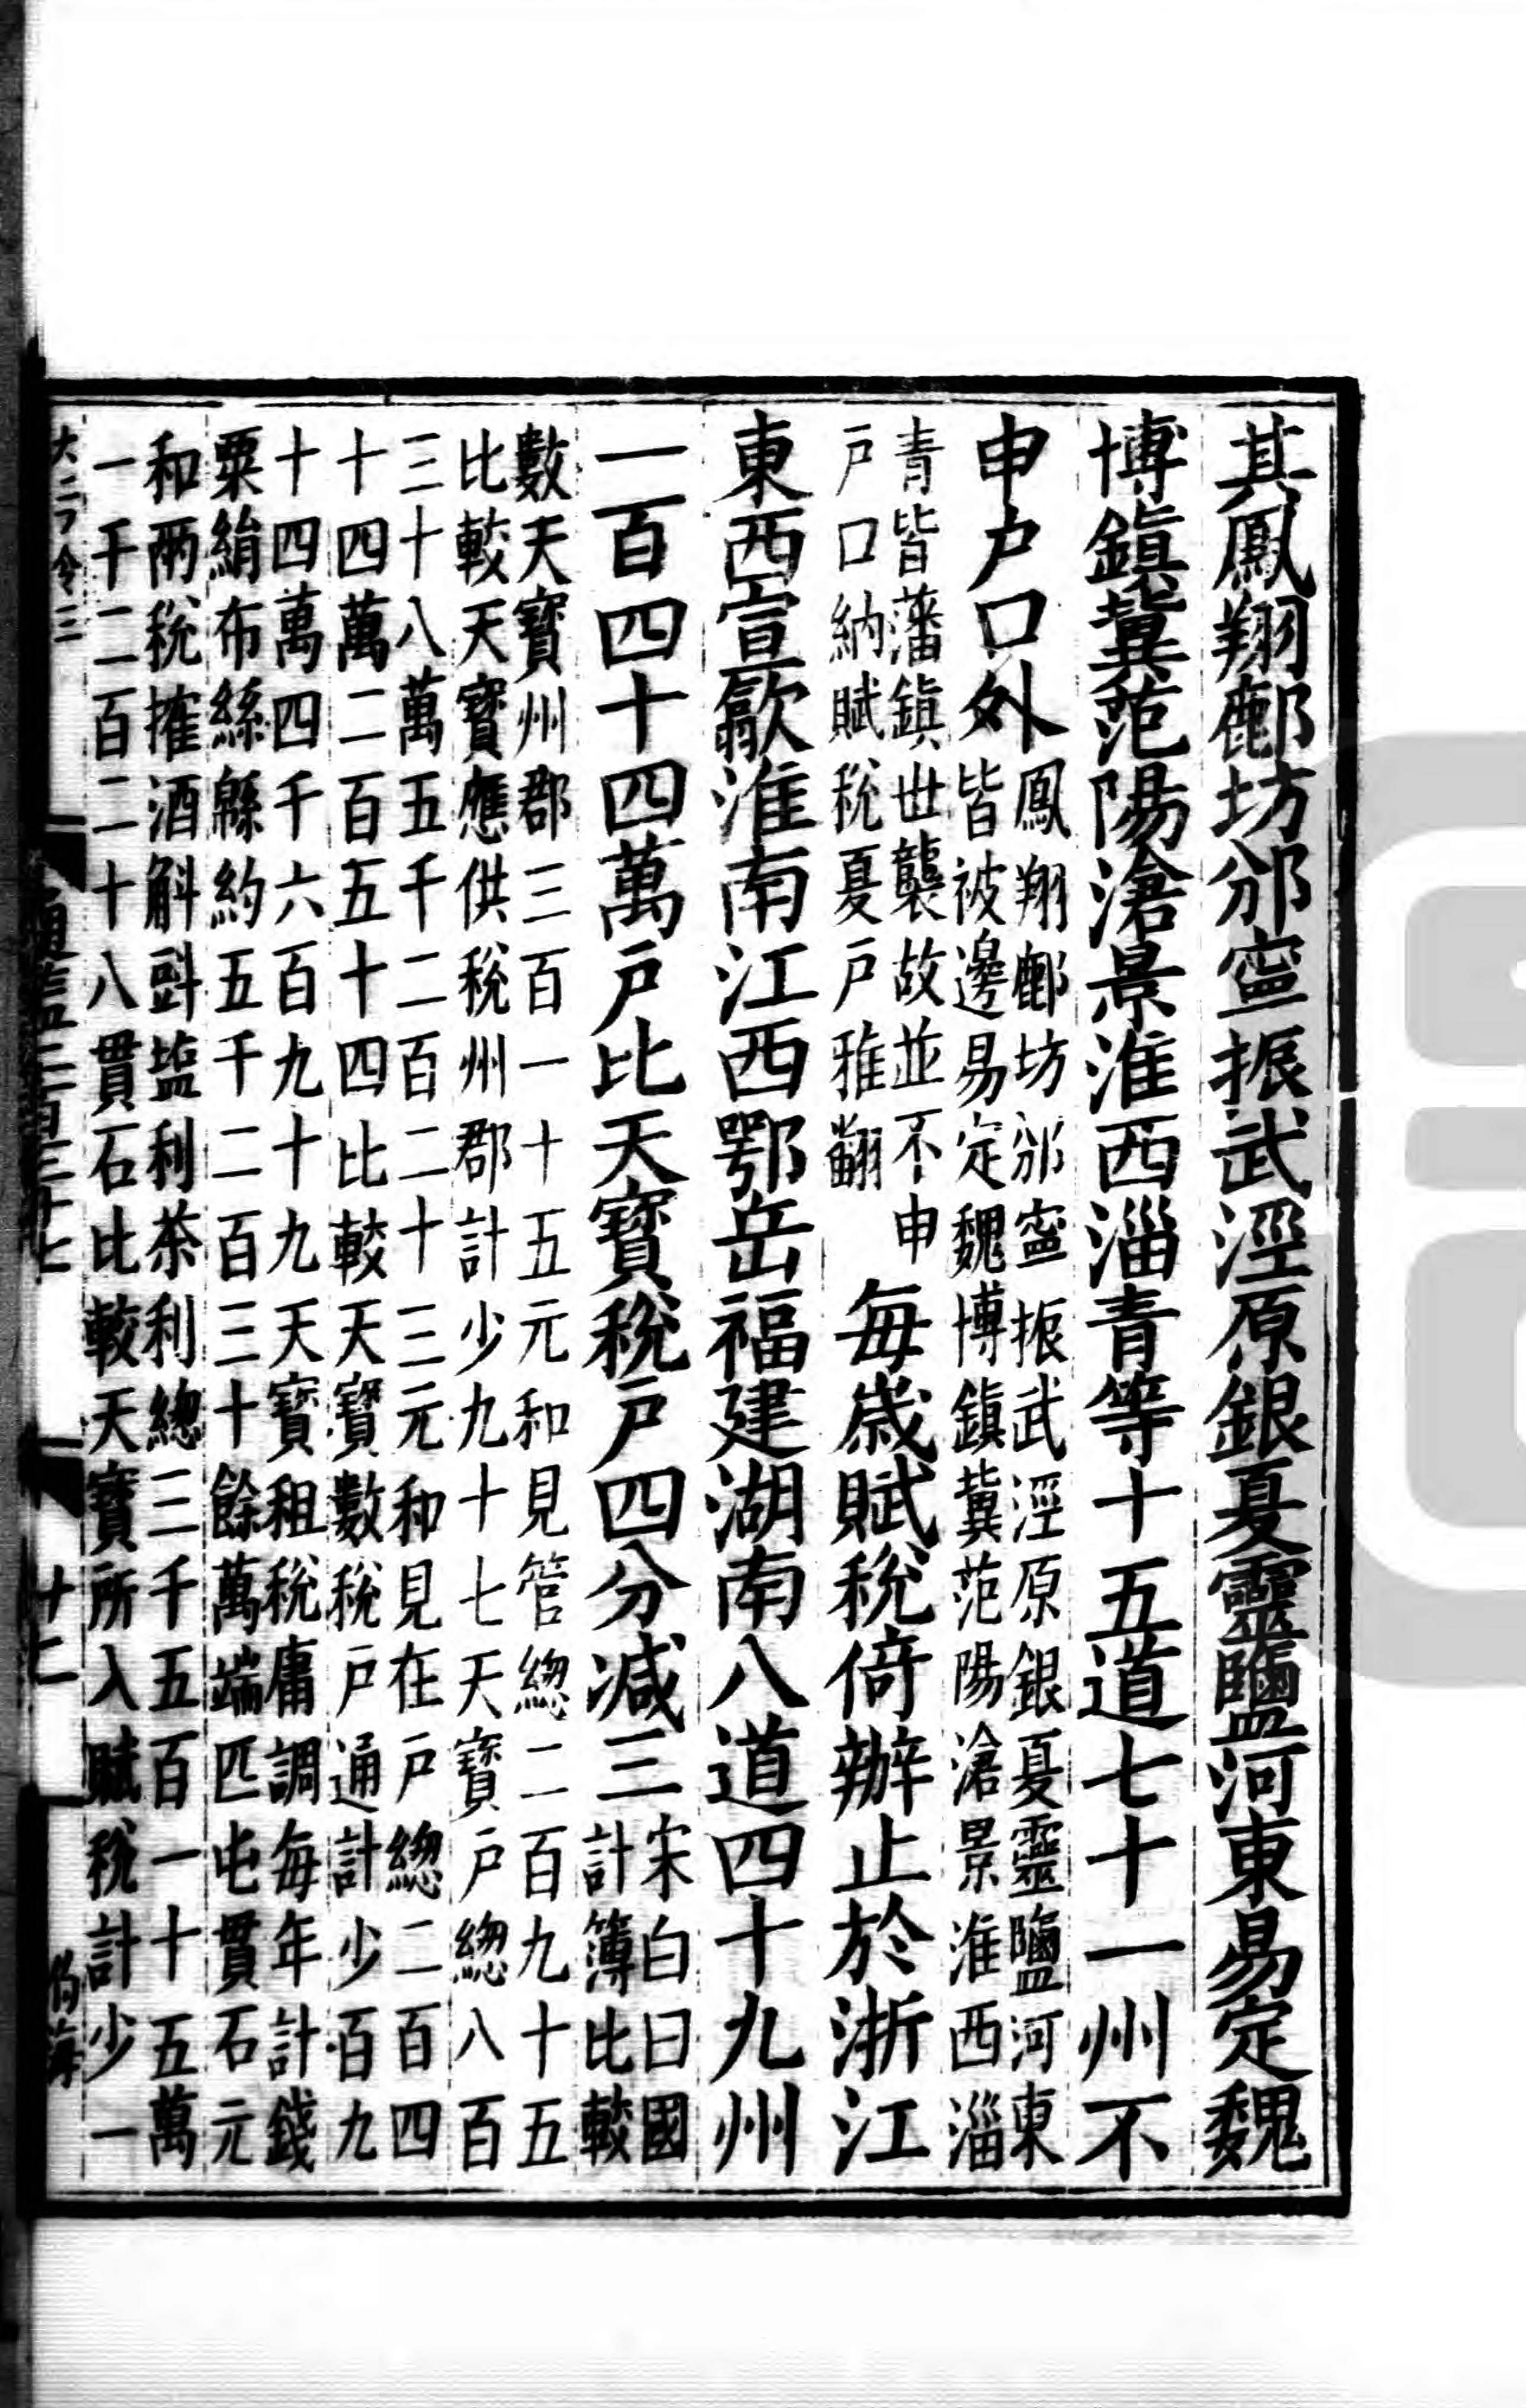 其鳳翔鄜坊邠寧振武涇原銀夏靈鹽河東易定魏
博鎮冀范陽滄景淮西淄青等十五道七十一州不
申戶口外
鳳翔鄜坊邠寧振武涇原銀夏靈鹽河東
皆被邊易定魏博鎮冀范陽滄景淮西淄
青皆藩鎮世襲故並不申
戶口納賦稅夏戶雅翻
每歲賦稅倚辦止於浙江
東西宣歙淮南江西鄂岳福建湖南八道四十九州
一百四十四萬戶比天寶稅戶四分減三
宋白曰國
計簿比較
數天寶州郡三百一十五元和見管總二百九十五
比較天寶應供稅州郡計少九十七天寶戶總八百
三十八萬五千二百二十三元和見在戶總二百四
十四萬二百五十四比較天寶數稅戶通計少百九
十四萬四千六百九十九天寶租稅庸調每年計錢
粟絹布絲緜約五千二百三十餘萬端匹屯貫石元
和兩稅搉酒斛㪷塩利茶利總三千五百一十五萬
一千二百二十八貫石比較天寶所入賦稅計少一
十七